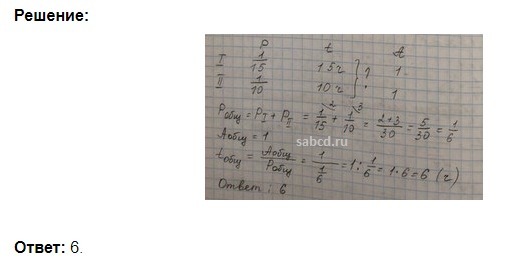 Решение:
P t A
I 1/15 15ч 1
II 1/10 10ч 1
Pобщ = PI + PII = 1/15 + 1/10 = 2+3/30 = 5/30 = 1/6
Aобщ = 1
sabcd.ru
tобщ = Aобщ/Pобщ = 1/(1/6) = 1 : 1/6 = 1 · 6 = 6 (ч)
Ответ: 6
Ответ: 6.